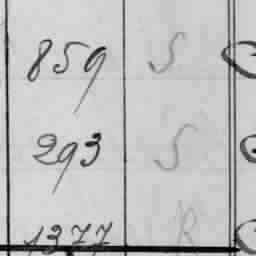 859 S
293 S
1377 R